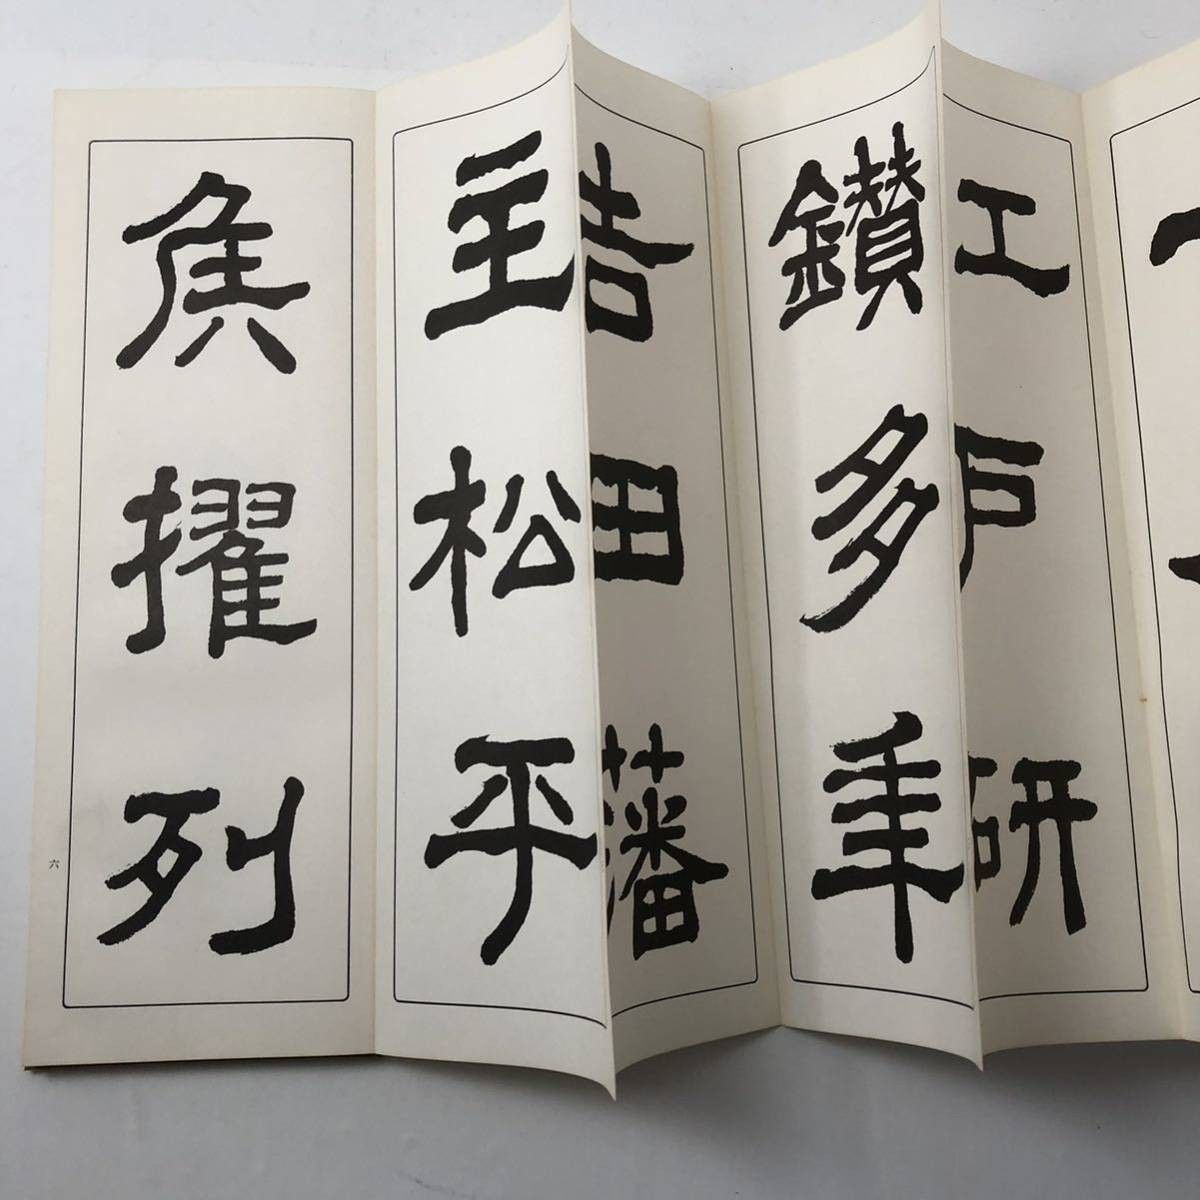 江戸研
鑽多年
吉田藩
主松平
侯擢列
六